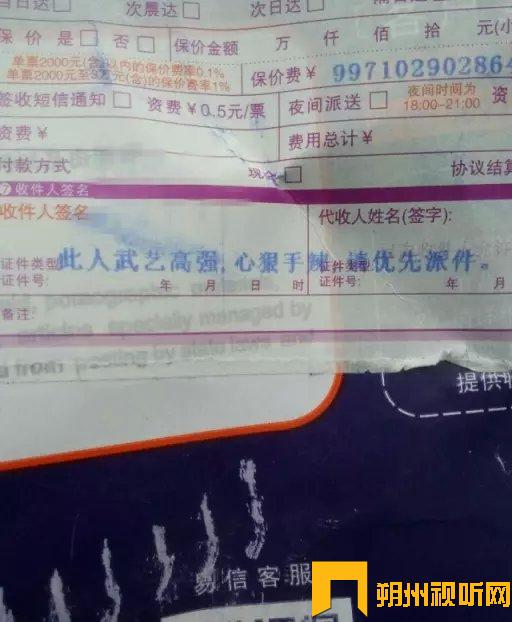 当日达□ 次晨达□ 次日达□
保价 是□ 否□ 保价金额 万 仟 佰 拾 元(小
单票2000元(含)以内的保价费率0.1%
单票2000元至3万元(含)的保价费率1%
保价费¥ 99710290286
签收短信通知□ 资费¥0.5元/票 夜间派送□ 夜间时间为 资
18:00-21:00
资费¥ 费用总计¥
付款方式 现金□ 协议结算
⑦收件人签名
收件人签名 代收人姓名(签字):
此人武艺高强,心狠手辣,请优先派件。
证件类型 证件类型
证件号: 年 月 日 时 证件号: 年 月
备注:
specially managed by
posting by state laws and
提供
易信客服
朔州视听网